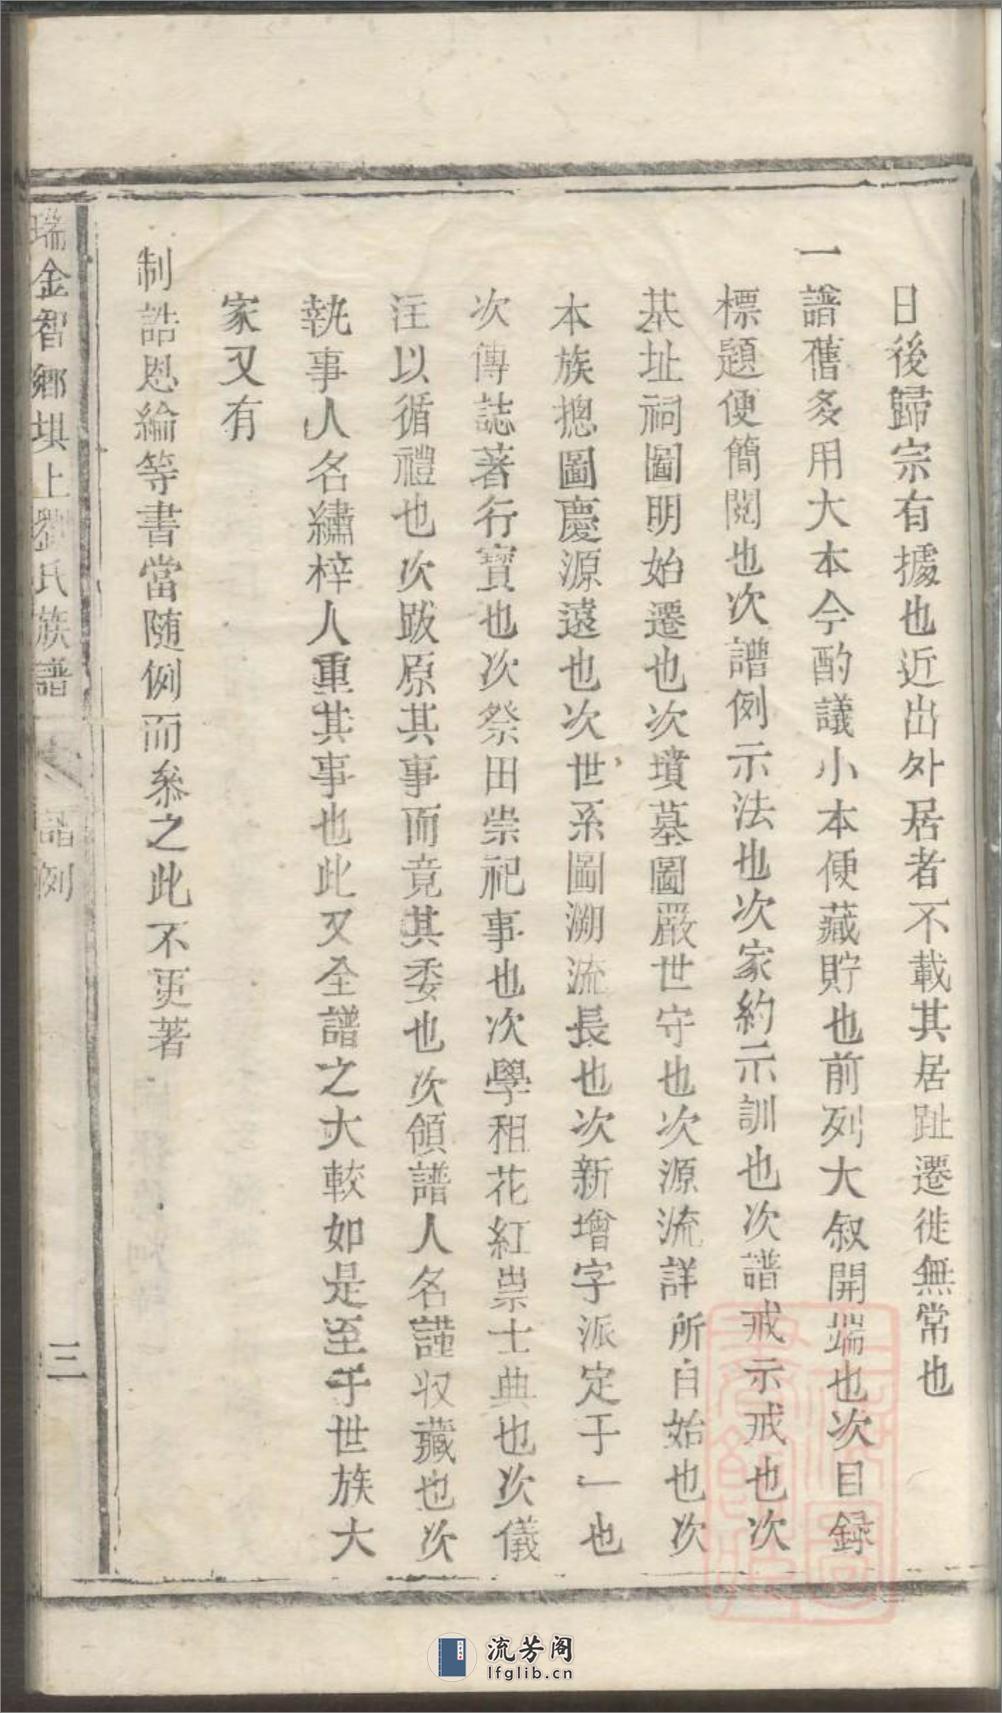 日後歸宗有據也近出外居者不載其居趾遷徙無常也
一譜舊多用大本今酌議小本便藏貯也前列大叙開端也次目録
標題便簡閱也次譜例示法也次家約示訓也次譜戒示戒也次
基址祠圖明始遷也次墳墓圖嚴世守也次源流詳所自始也次
本族摠圖慶源遠也次世系圖溯流長也次新增字派定于一也
次傳誌著行實也次祭田崇祀事也次學租花紅崇士典也次儀
注以循禮也次跋原其事而竟其委也次領譜人名謹收藏也次
執事人名繡梓人重其事也此又全譜之大較如是至于世族大
家又有
制誥恩綸等書當随例而叅之此不更著
瑞金智鄉垻上劉氏族譜 譜例
三
流芳阁
lfglib.cn